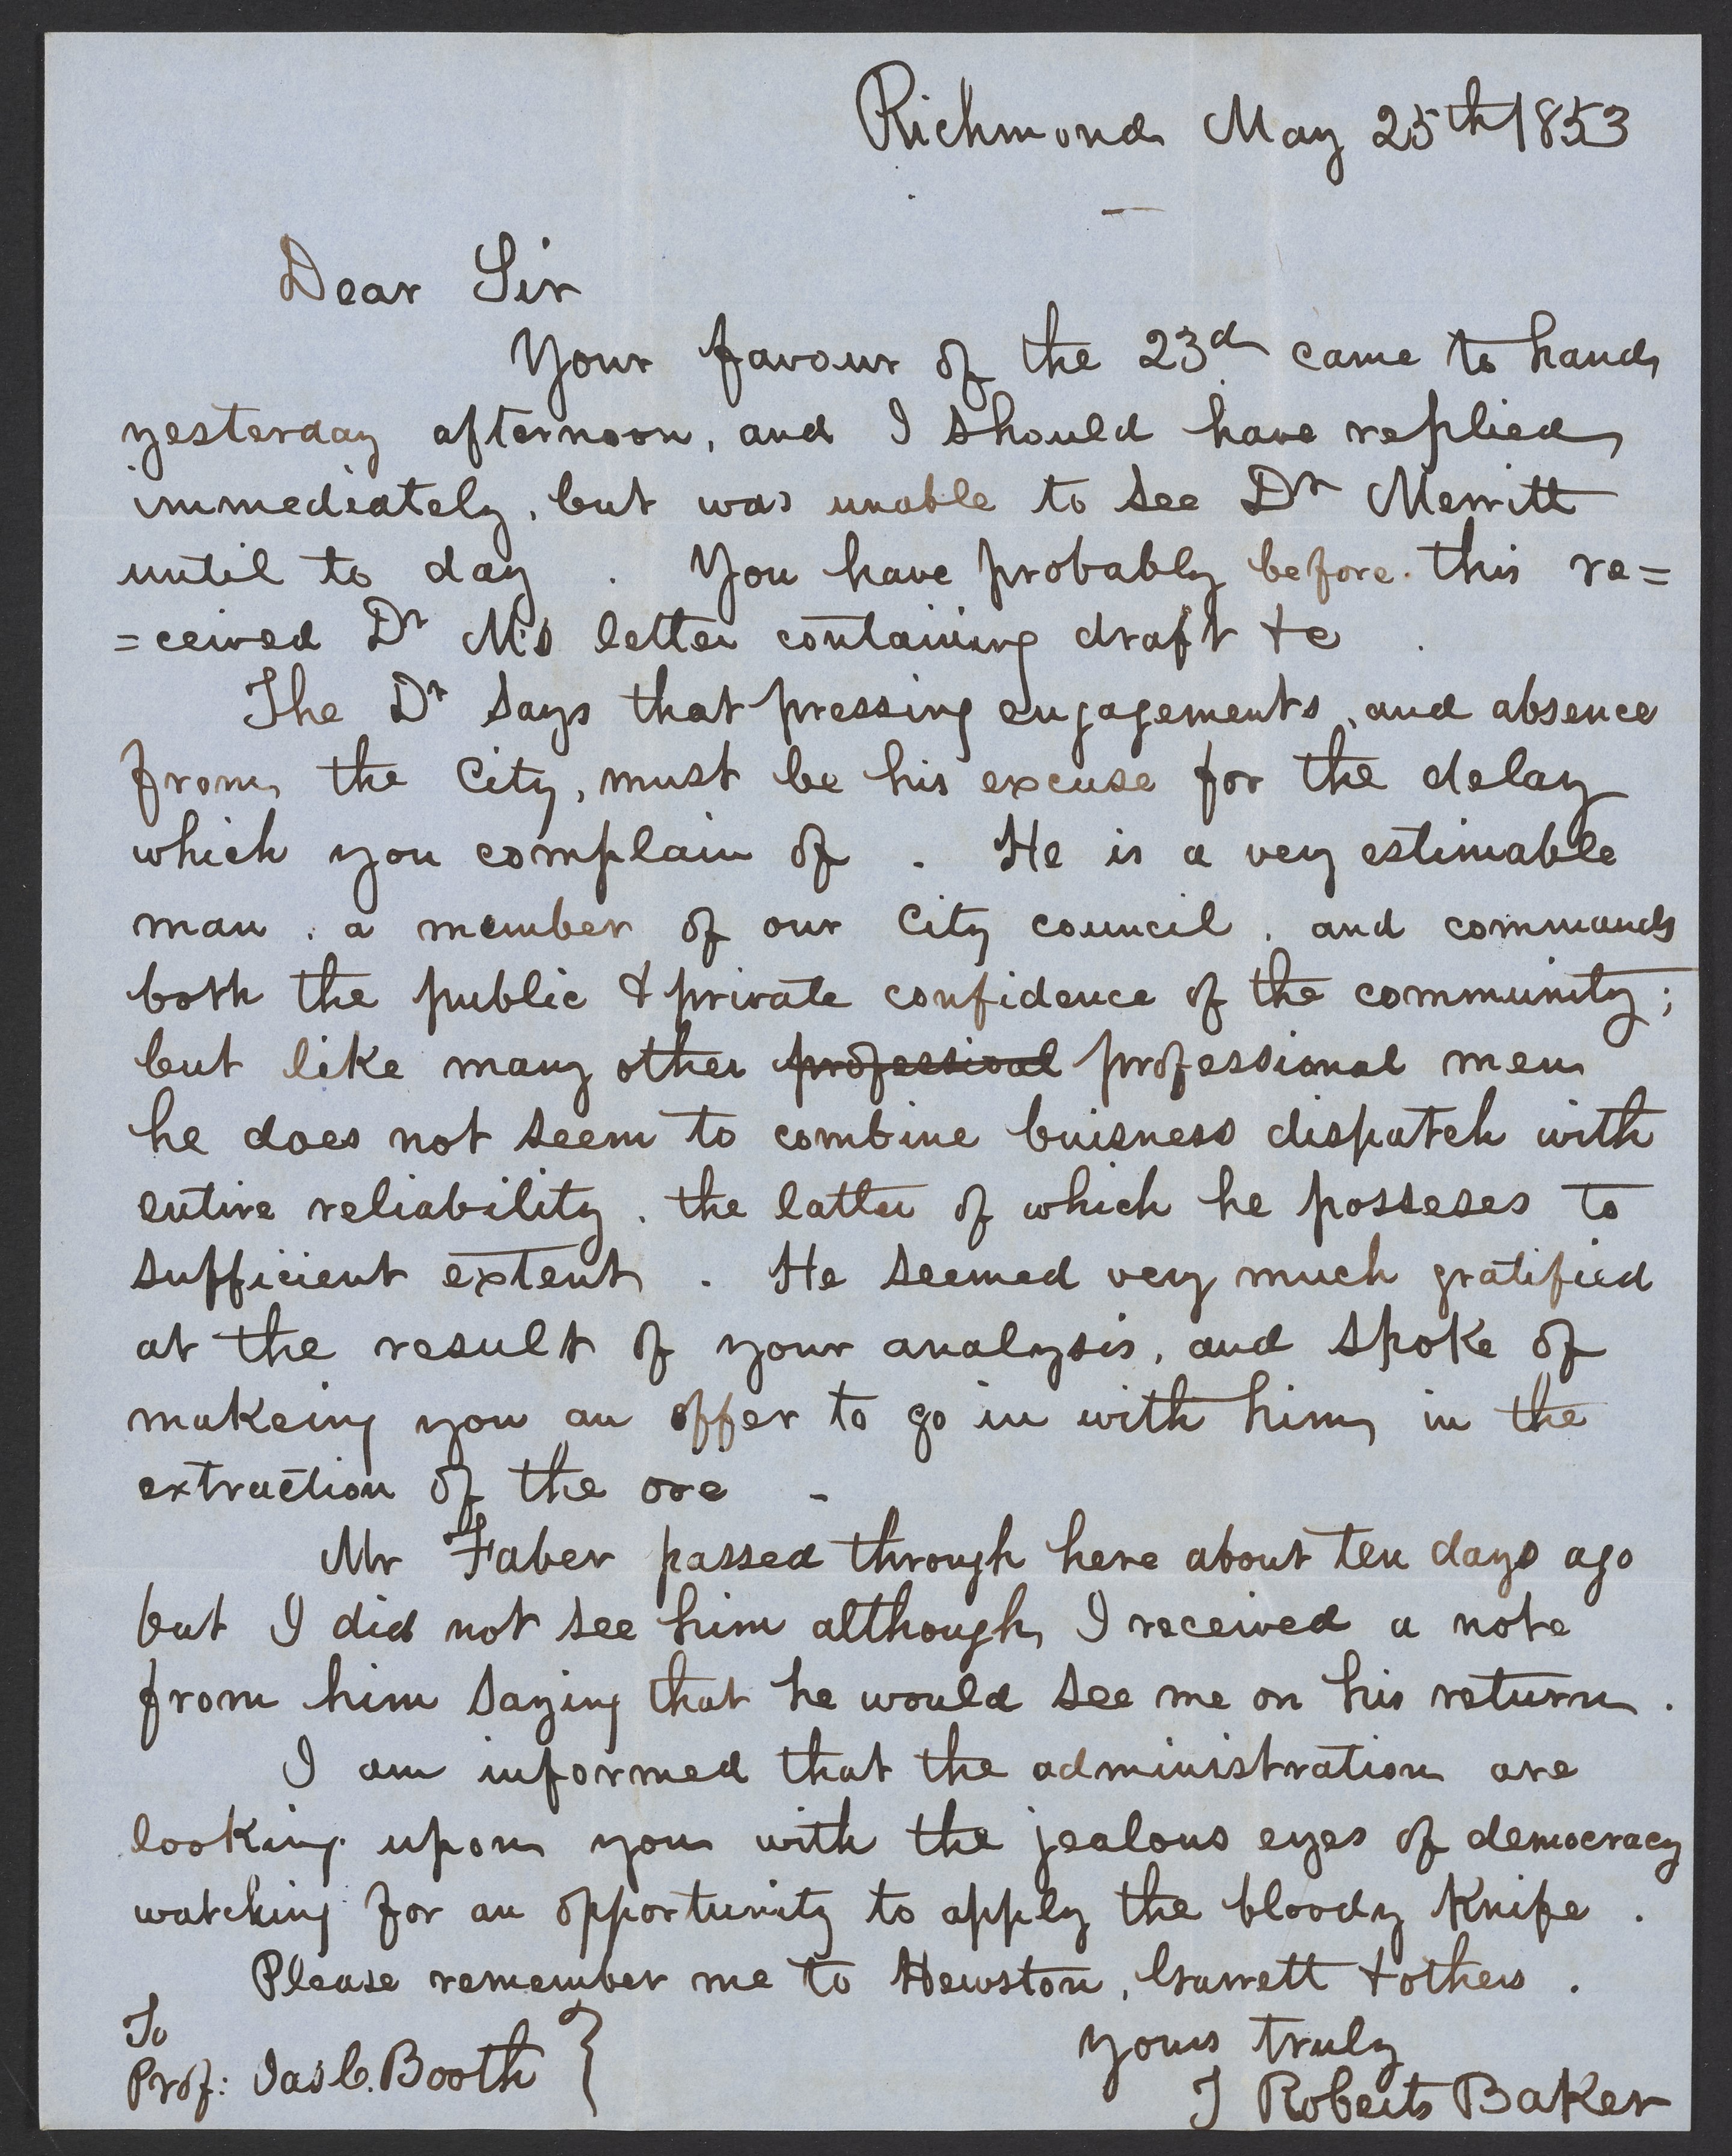 Richmond May 25th 1853
Dear Sir
Your favour of the 23d came to hand
yesterday afternoon, and I should have replied
immediately, but was unable to see Dr Merritt
until to day . You have probably before this re=
=ceived Dr M's letter containing draft &c .
The Dr says that pressing engagements, and absence
from the City, must be his excuse for the delay
which you complain of . He is a very estimable
man , a member of our City council , and commands
both the public & private confidence of the community;
but like many other professional professional men
he does not seem to combine buisness dispatch with
entire reliability , the latter of which he posseses to
sufficient extent . He seemed very much gratified
at the result of your analysis, and spoke of
makeing you an offer to go in with him in the
extraction of the ore -
Mr Faber passed through here about ten days ago
but I did not see him although I received a note
from him saying that he would see me on his return .
I am informed that the administration are
looking upon you with the jealous eyes of democracy
watching for an opportunity to apply the bloody Knife .
Please remember me to Hewston, Garrett & others .
To
Prof: Jas C. Booth }
yours truly
T Roberts Baker